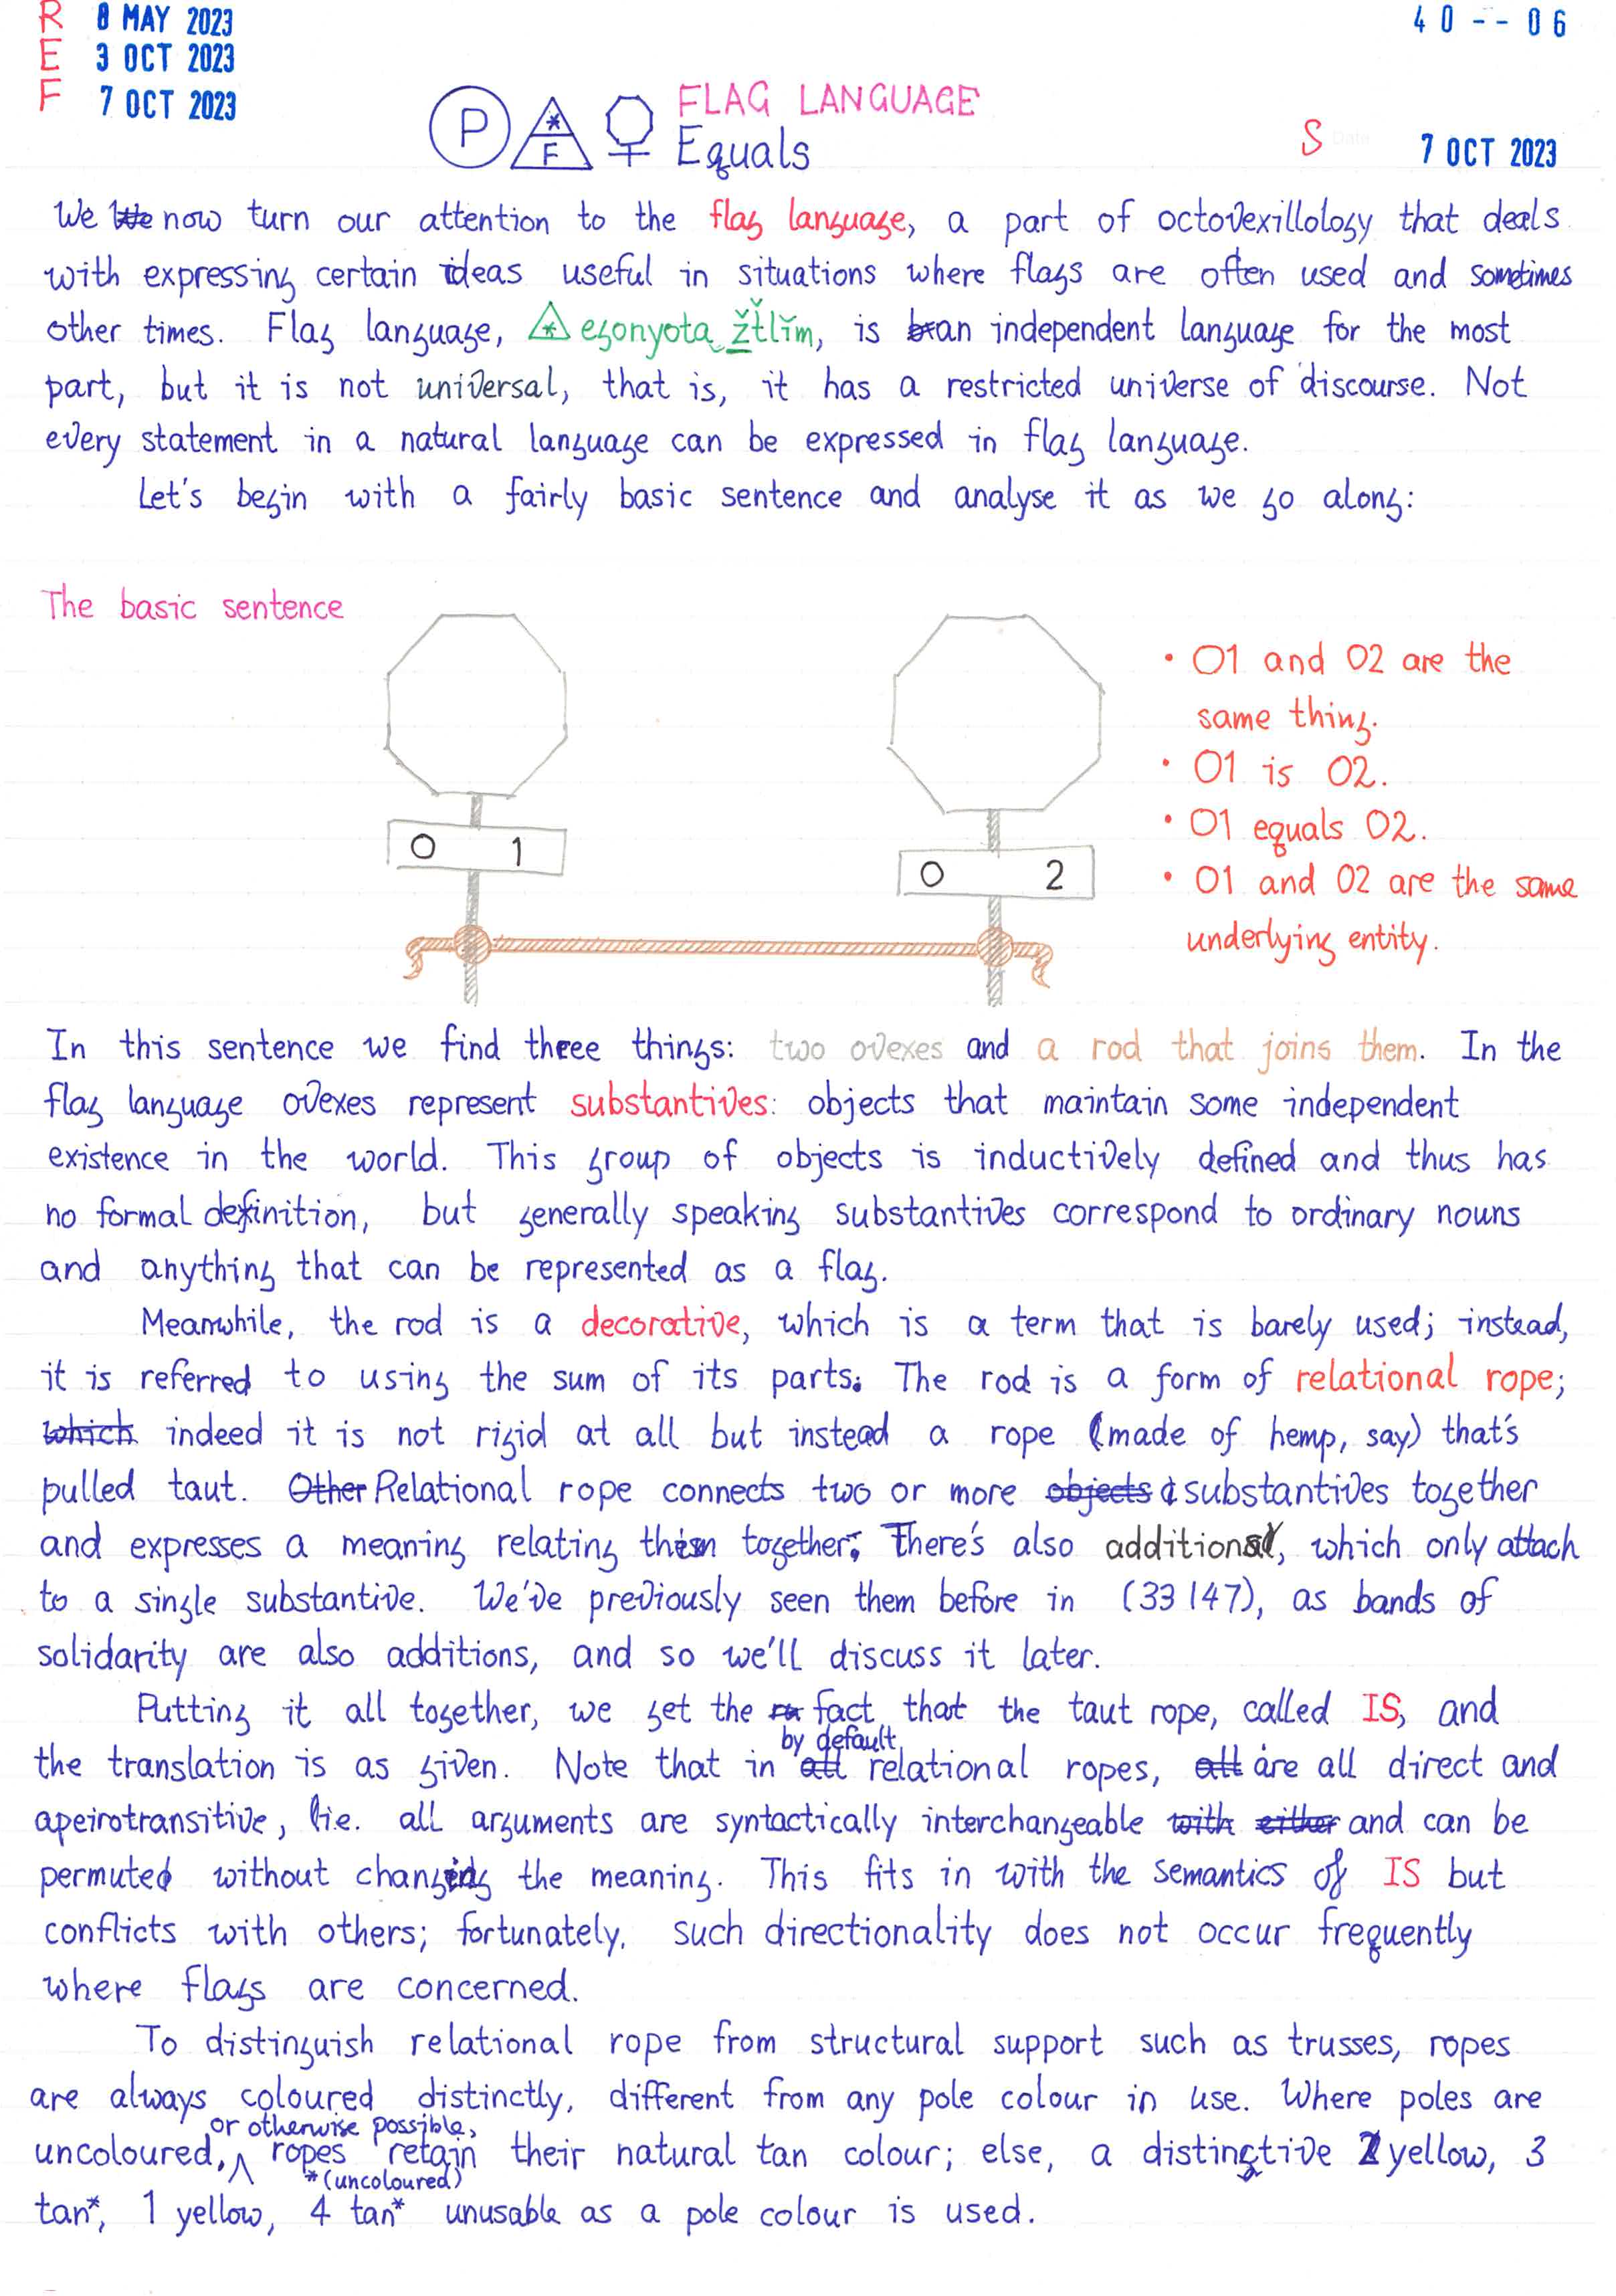 R 8 MAY 2023 40 -- 06
E 3 OCT 2023
F 7 OCT 2023
P * F FLAG LANGUAGE
Equals S Date 7 OCT 2023
We now turn our attention to the flag language, a part of octovexillology that deals
with expressing certain ideas useful in situations where flags are often used and sometimes
other times. Flag language, * egonyota žtlǐm, is an independent language for the most
part, but it is not universal, that is, it has a restricted universe of discourse. Not
every statement in a natural language can be expressed in flag language.
Let's begin with a fairly basic sentence and analyse it as we go along:
The basic sentence
• O1 and O2 are the
same thing.
• O1 is O2.
• O1 equals O2.
• O1 and O2 are the same
underlying entity.
O 1
O 2
In this sentence we find three things: two ovexes and a rod that joins them. In the
flag language ovexes represent substantives: objects that maintain some independent
existence in the world. This group of objects is inductively defined and thus has
no formal definition, but generally speaking substantives correspond to ordinary nouns
and anything that can be represented as a flag.
Meanwhile, the rod is a decorative, which is a term that is barely used; instead,
it is referred to using the sum of its parts. The rod is a form of relational rope;
which indeed it is not rigid at all but instead a rope (made of hemp, say) that's
pulled taut. Other Relational rope connects two or more objects substantives together
and expresses a meaning relating them together; There's also additions, which only attach
to a single substantive. We've previously seen them before in (33147), as bands of
solidarity are also additions, and so we'll discuss it later.
Putting it all together, we get the fact that the taut rope, called IS, and
by default
the translation is as given. Note that in all relational ropes, all are all direct and
apeirotransitive, i.e. all arguments are syntactically interchangeable with either and can be
permuted without changing the meaning. This fits in with the semantics of IS but
conflicts with others; fortunately, such directionality does not occur frequently
where flags are concerned.
To distinguish relational rope from structural support such as trusses, ropes
are always coloured distinctly, different from any pole colour in use. Where poles are
or otherwise possible,
uncoloured, ropes retain their natural tan colour; else, a distinctive 2 yellow, 3
*(uncoloured)
tan*, 1 yellow, 4 tan* unusable as a pole colour is used.